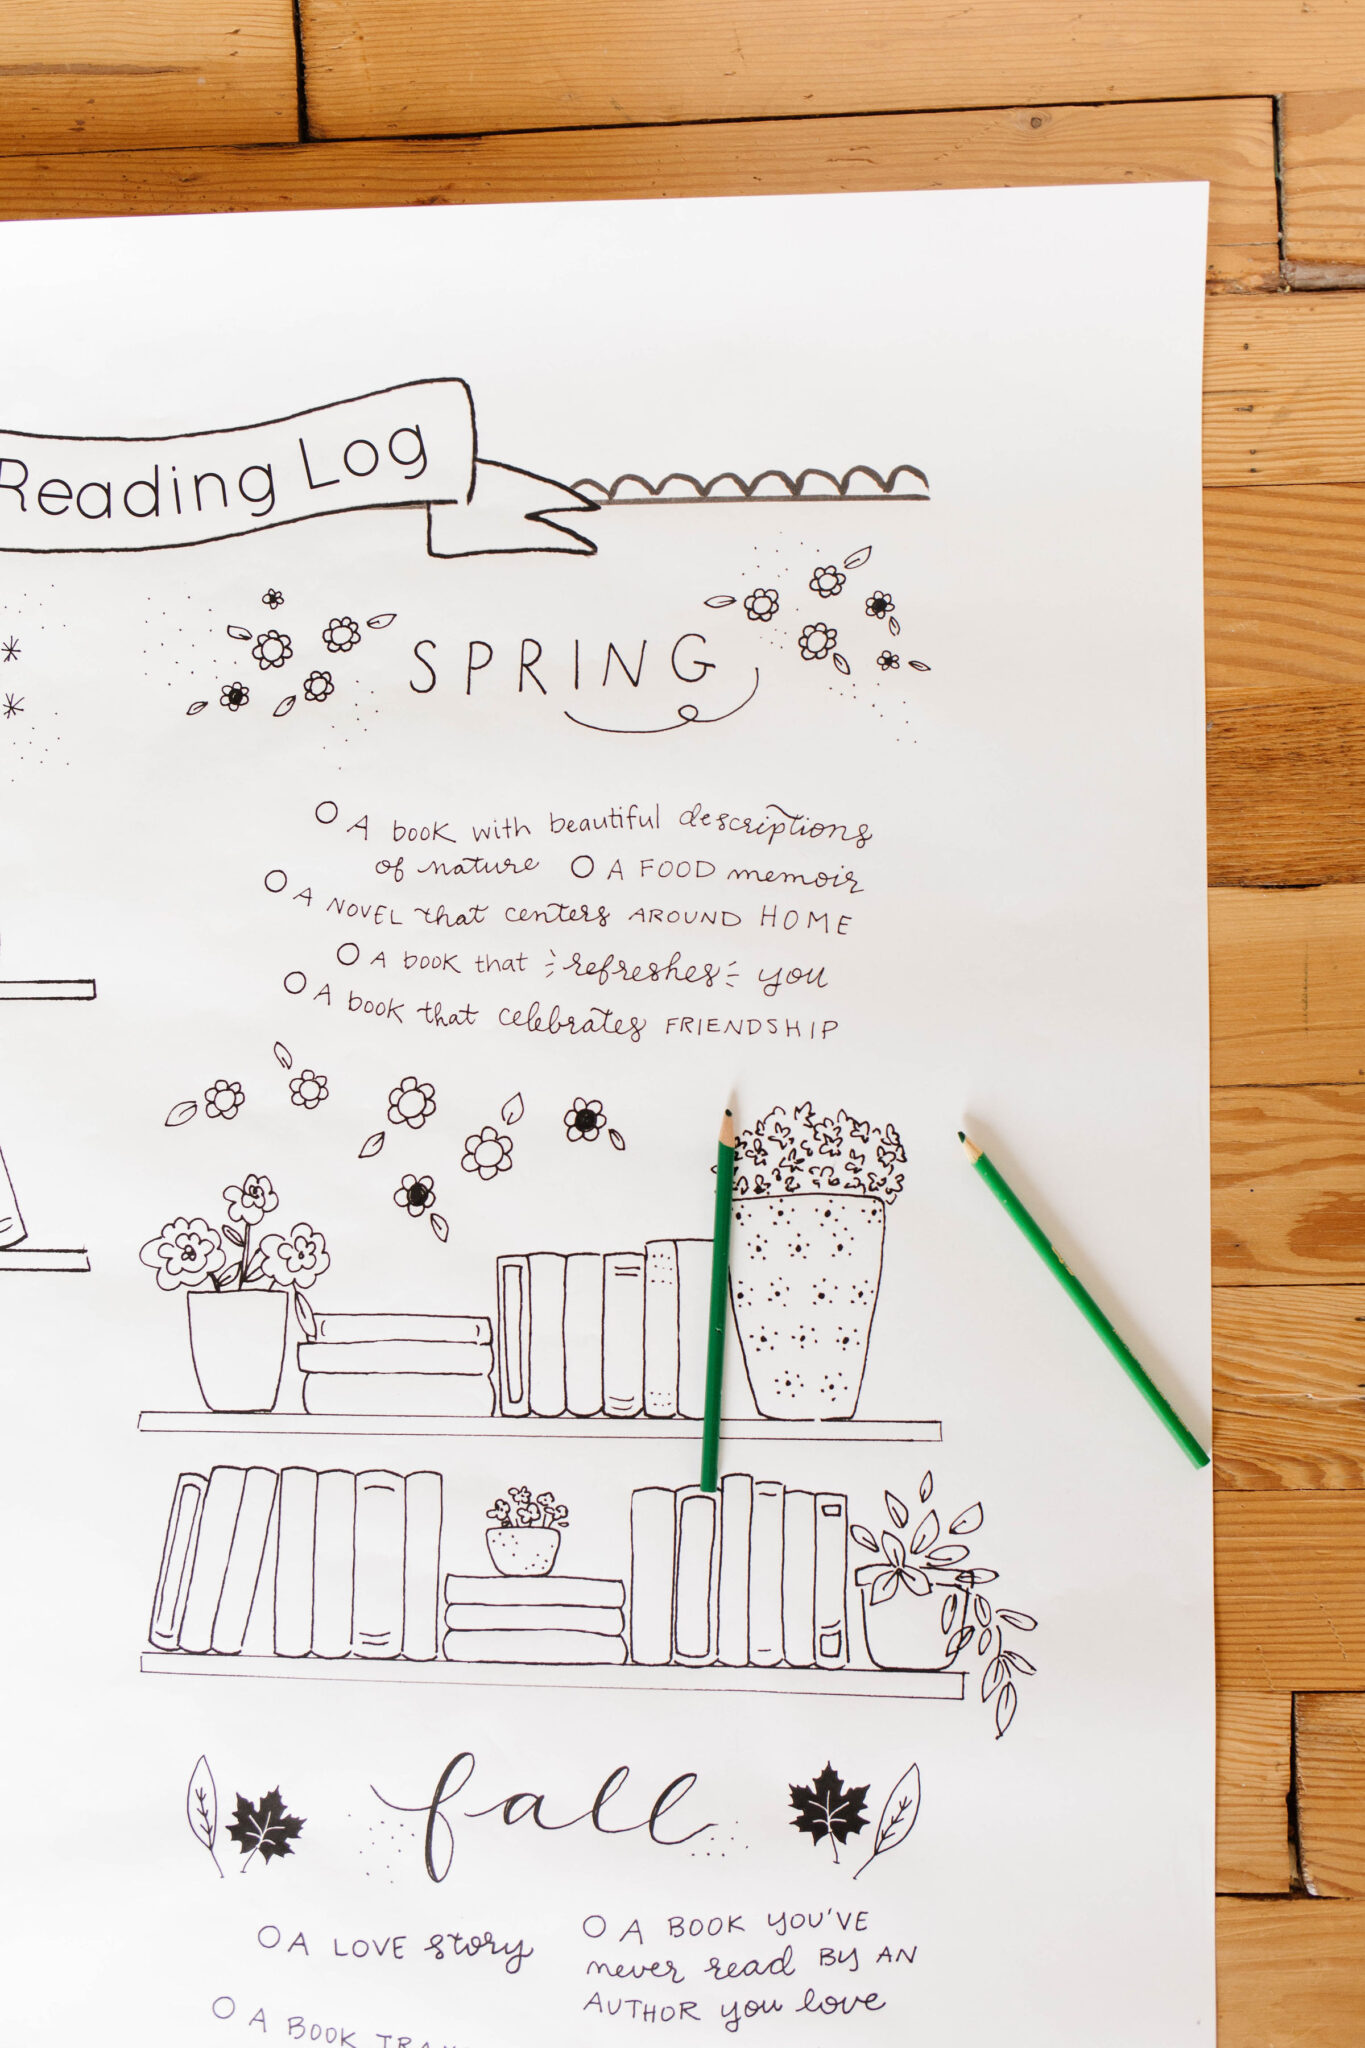 Reading Log
SPRING
A book with beautiful descriptions
of nature
A FOOD memoir
A NOVEL that centers AROUND HOME
A book that refreshes you
A book that celebrates FRIENDSHIP
fall
A LOVE story
A BOOK YOU'VE
never read BY AN
AUTHOR you love
A BOOK